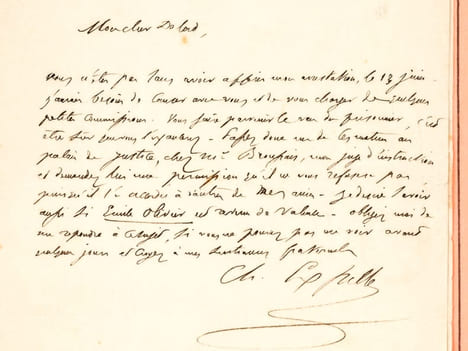 Mon cher Dolard,
vous n'êtes pas sans avoir appris mon arrestation, le 13 juin
j'aurais besoin de causer avec vous et de vous charger de quelques
petites commissions. Vous faire parvenir le du prisonnier, c'est
être sûr Passez donc un de ces matins au
palais de justice, chez Mr mon juge d'instruction
et demandez lui une permission qu'il ne vous refusera pas
puisqu'il l'a accordée à d'autres de mes amis - je désire savoir
aussi si Emile Ollivier est de - obligez moi de
me répondre à si vous ne pouvez pas me voir avant
quelques jours et croyez à mes sentiments fraternels
Ch.